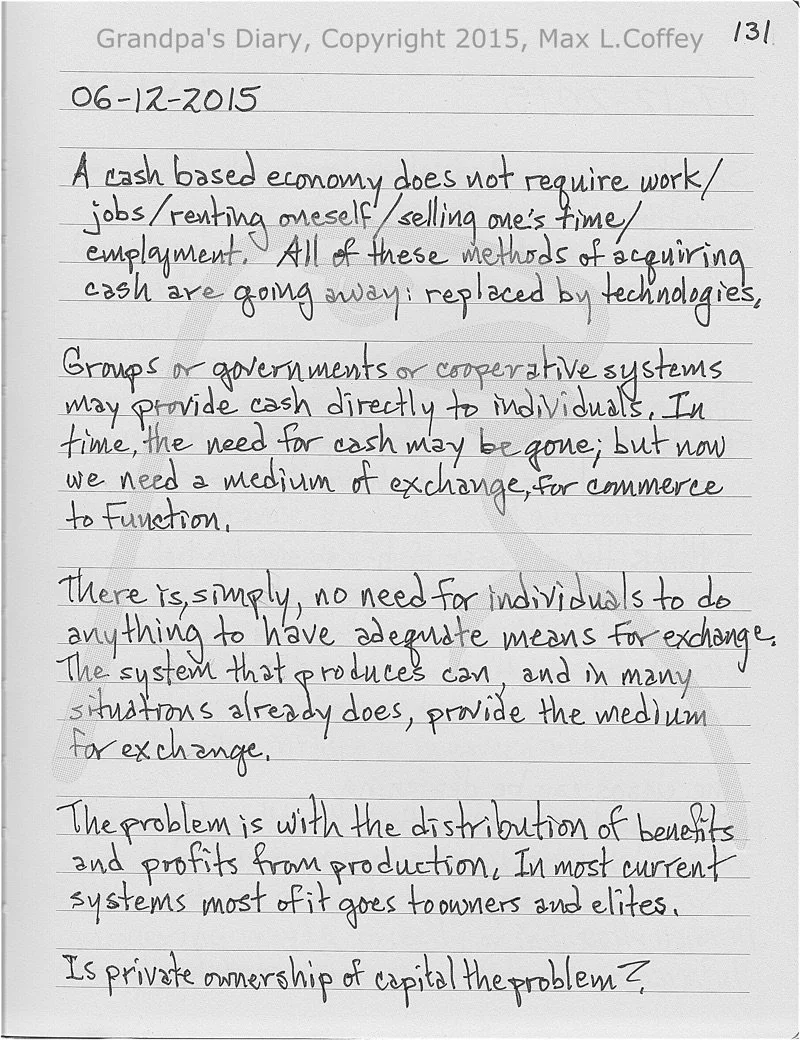 Grandpa's Diary, Copyright 2015, Max L.Coffey
131
06-12-2015
A cash based economy does not require work/
jobs/renting oneself/selling one's time/
employment. All of these methods of acquiring
cash are going away: replaced by technologies.
Groups or governments or cooperative systems
may provide cash directly to individuals. In
time, the need for cash may be gone; but now
we need a medium of exchange, for commerce
to function.
There is, simply, no need for individuals to do
anything to have adequate means for exchange.
The system that produces can, and in many
situations already does, provide the medium
for exchange.
The problem is with the distribution of benefits
and profits from production. In most current
systems most of it goes to owners and elites.
Is private ownership of capital the problem?